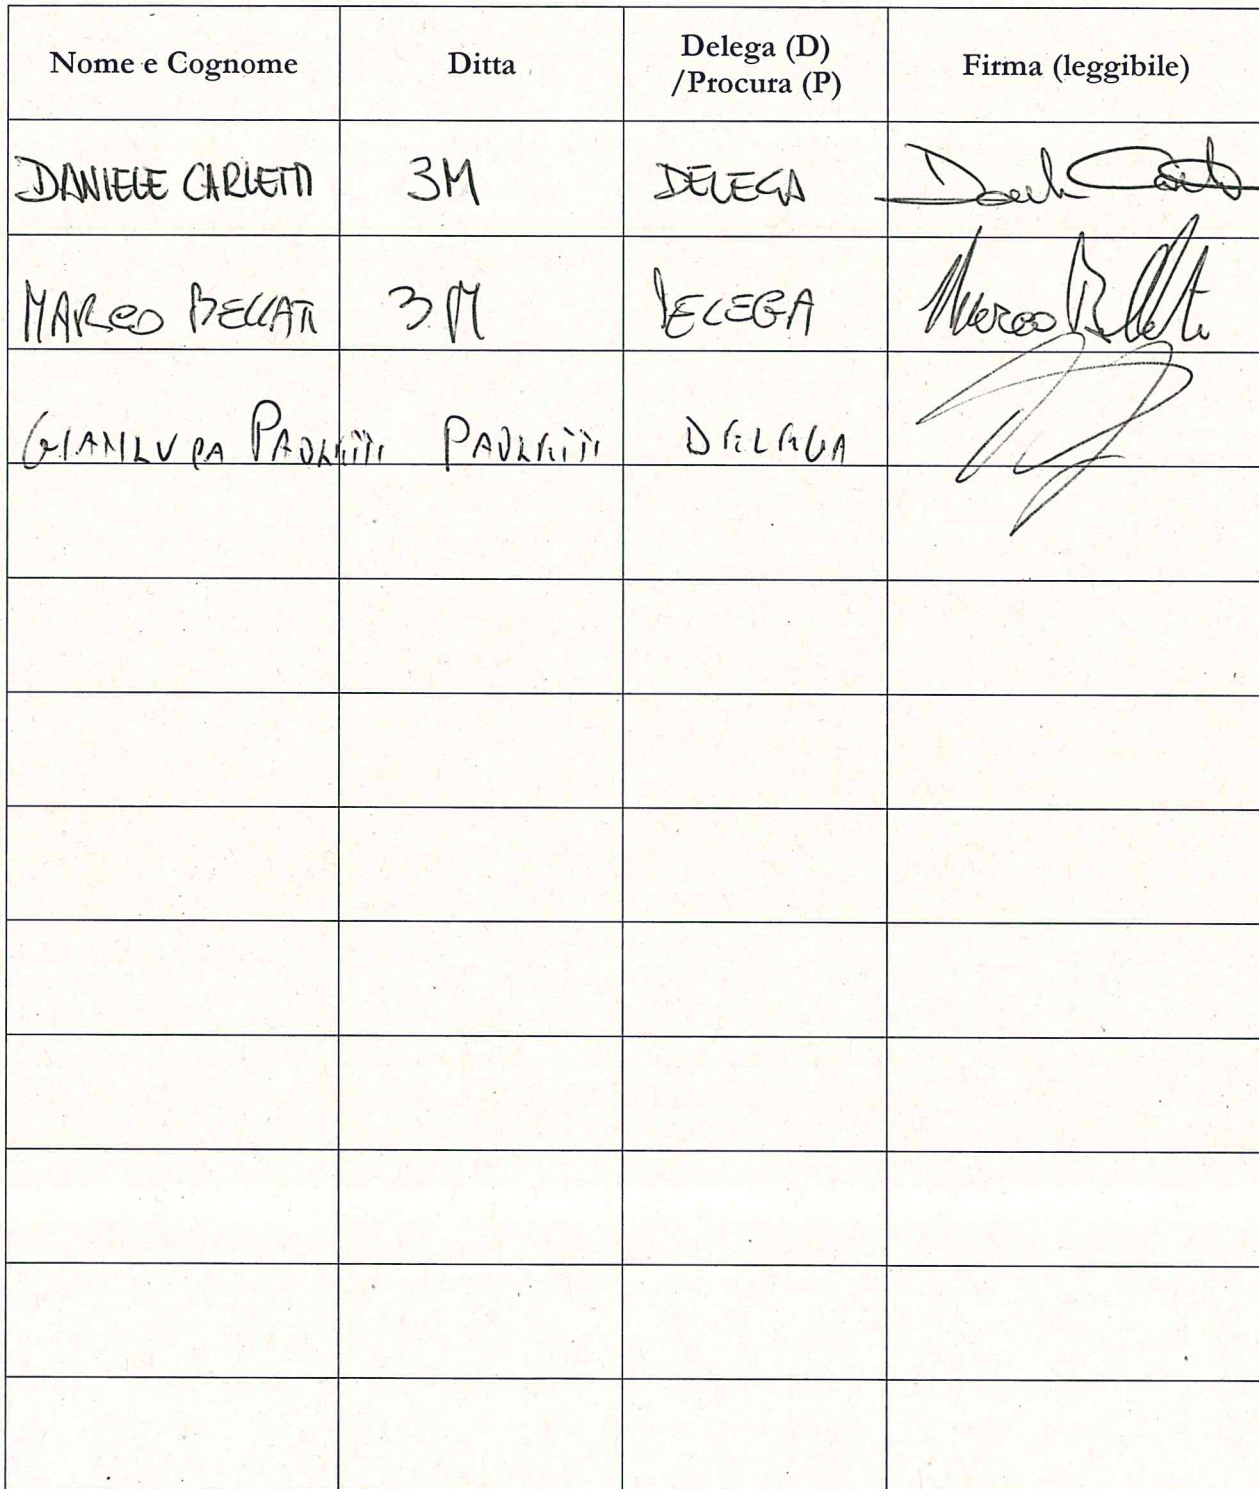 Nome e Cognome
Ditta
Delega (D)
/Procura (P)
Firma (leggibile)
DANIELE CARLETTI 3M DELEGA
MARCO BELLATI 3M DELEGA Marco
GIANLUCA PAOLETTI PAOLETTI DELEGA